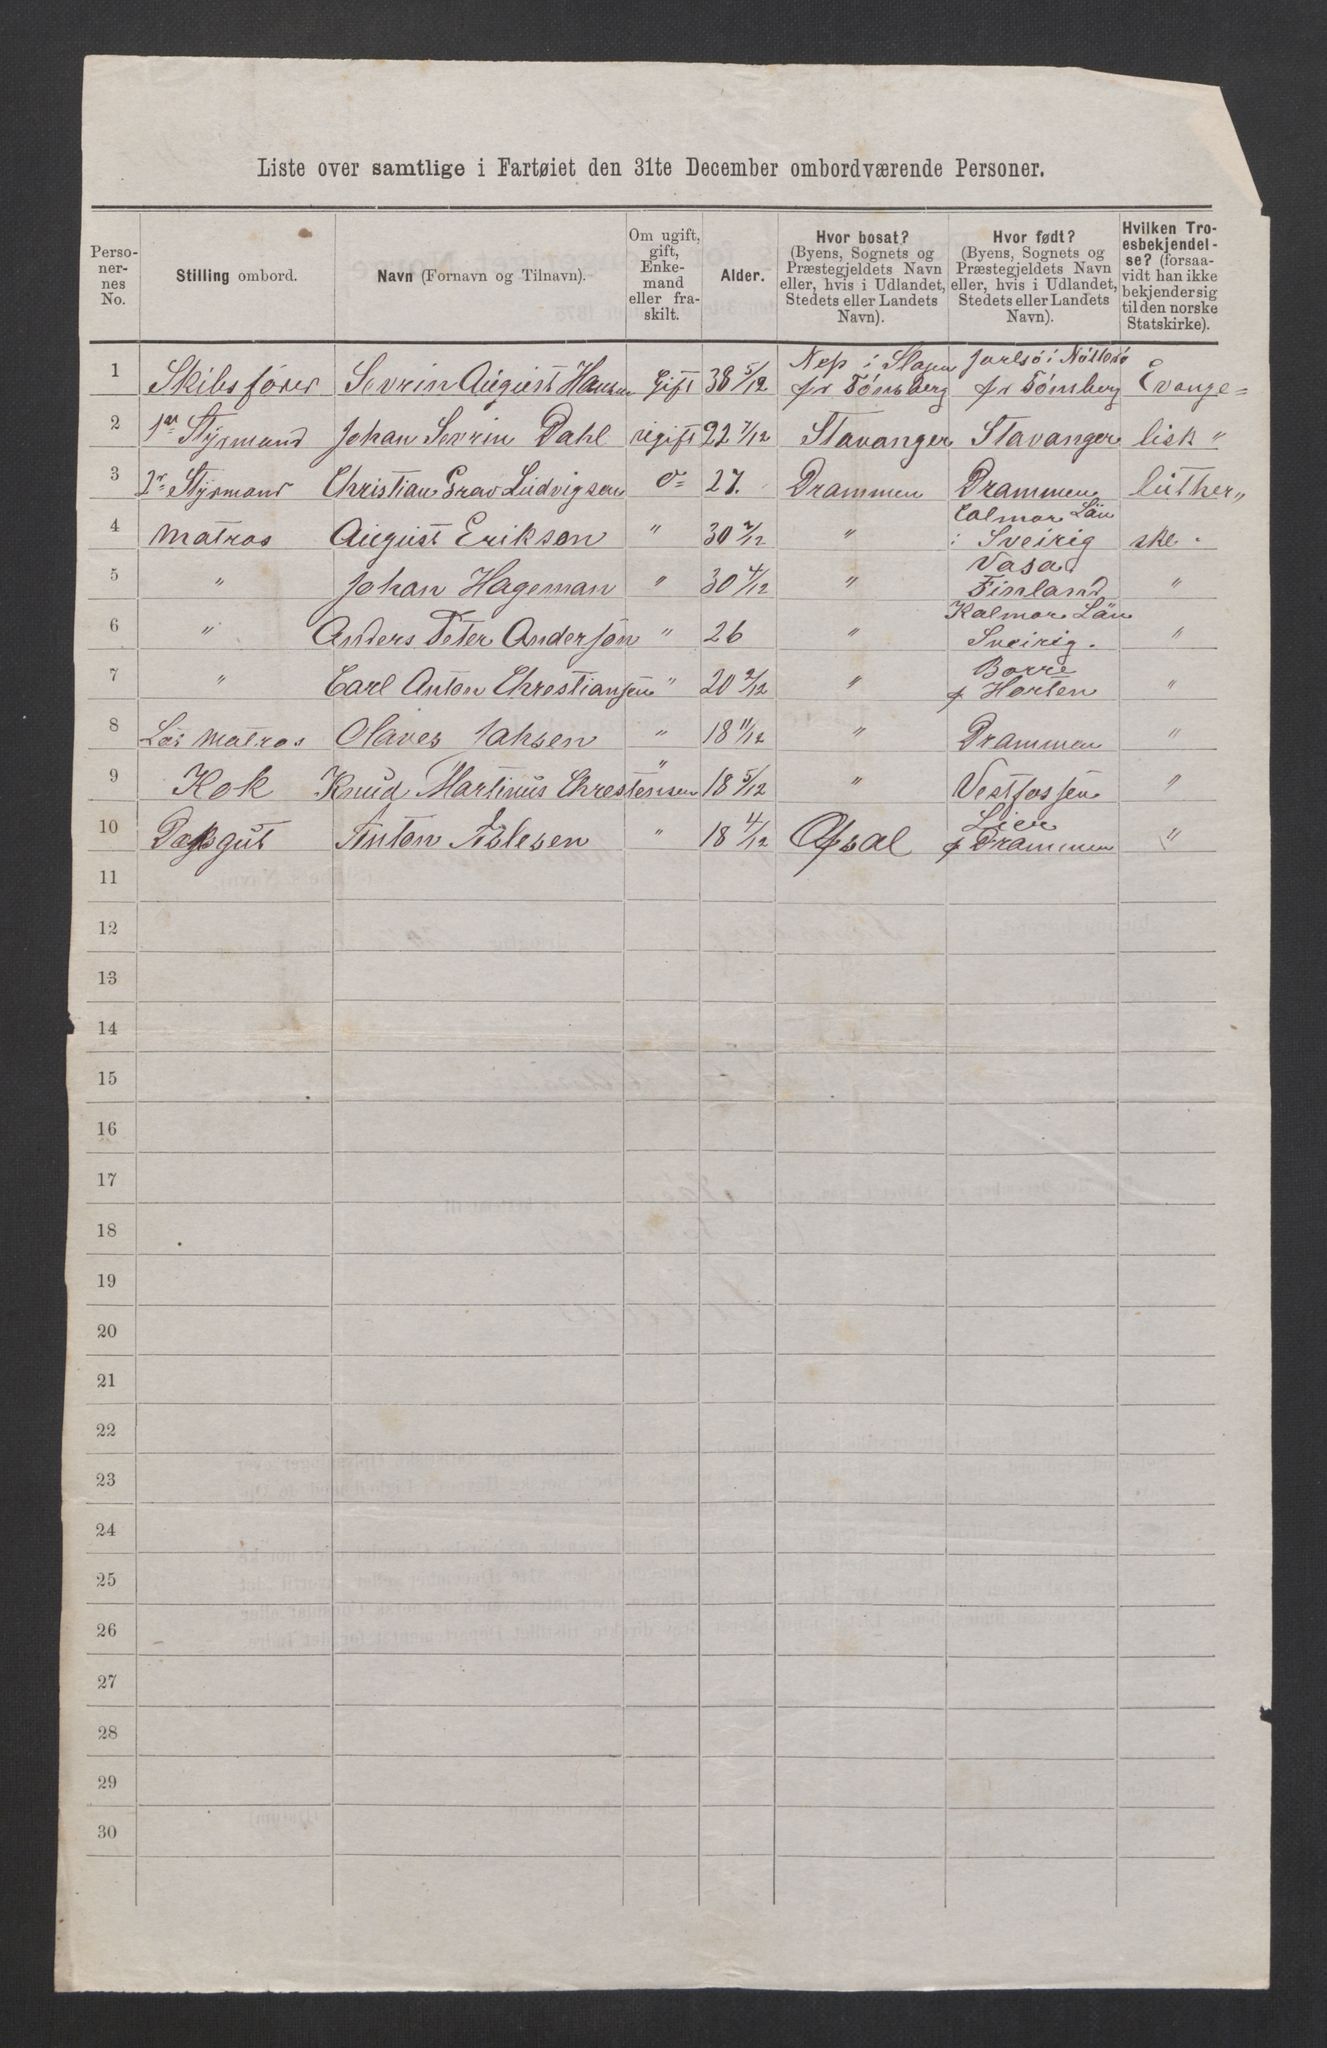 Liste over samtlige i Fartøiet den 31te December ombordværende Personer.
Perso-
ner-
nes
No.
Stilling ombord.
Navn (Fornavn og Tilnavn).
Om ugift,
gift,
Enke-
mand
eller fra-
skilt.
Alder.
Hvor bosat?
(Byens, Sognets og
Præstegjeldets Navn
eller, hvis i Udlandet,
Stedets eller Landets
Navn).
Hvor født?
(Byens, Sognets og
Præstegjeldets Navn
eller, hvis i Udlandet,
Stedets eller Landets
Navn).
Hvilken Tro-
esbekjendel-
se? (forsaa-
vidt han ikke
bekjender sig
til den norske
Statskirke).
1 Skibsfører Sevrin August Hansen Gift 38 5/12 i Slagen pr Tönsberg Jarlsö i Nötterö pr Tömsberg Evange=
2 1ste Styrmand Johan Sevrin Dahl ugift 22 7/12 Stavanger Stavanger lisk "
3 2n Styrmand Christian Ludvigsen 27. Drammen Drammen luther "
4 Matros August Erikson " 30 2/12 " Calmar Län i Sveirig ske -
5 " Johan Hageman " 30 4/12 " Vasa Finland "
6 " Anders Peter Anderson " 26 " Kalmar Län Sveirig. "
7 " Carl Anton Chrestiansen " 20 2/12 " Borre p Horten "
8 Matros Olaves " 18 11/12 " Drammen "
9 Kok Knud Martinus Chrestensen " 18 5/12 " Vestfossen "
10 Anton Aslesen " 18 4/12 Lier p Drammen "
11
12
13
14
15
16
17
18
19
20
21
22
23
24
25
26
27
28
29
30